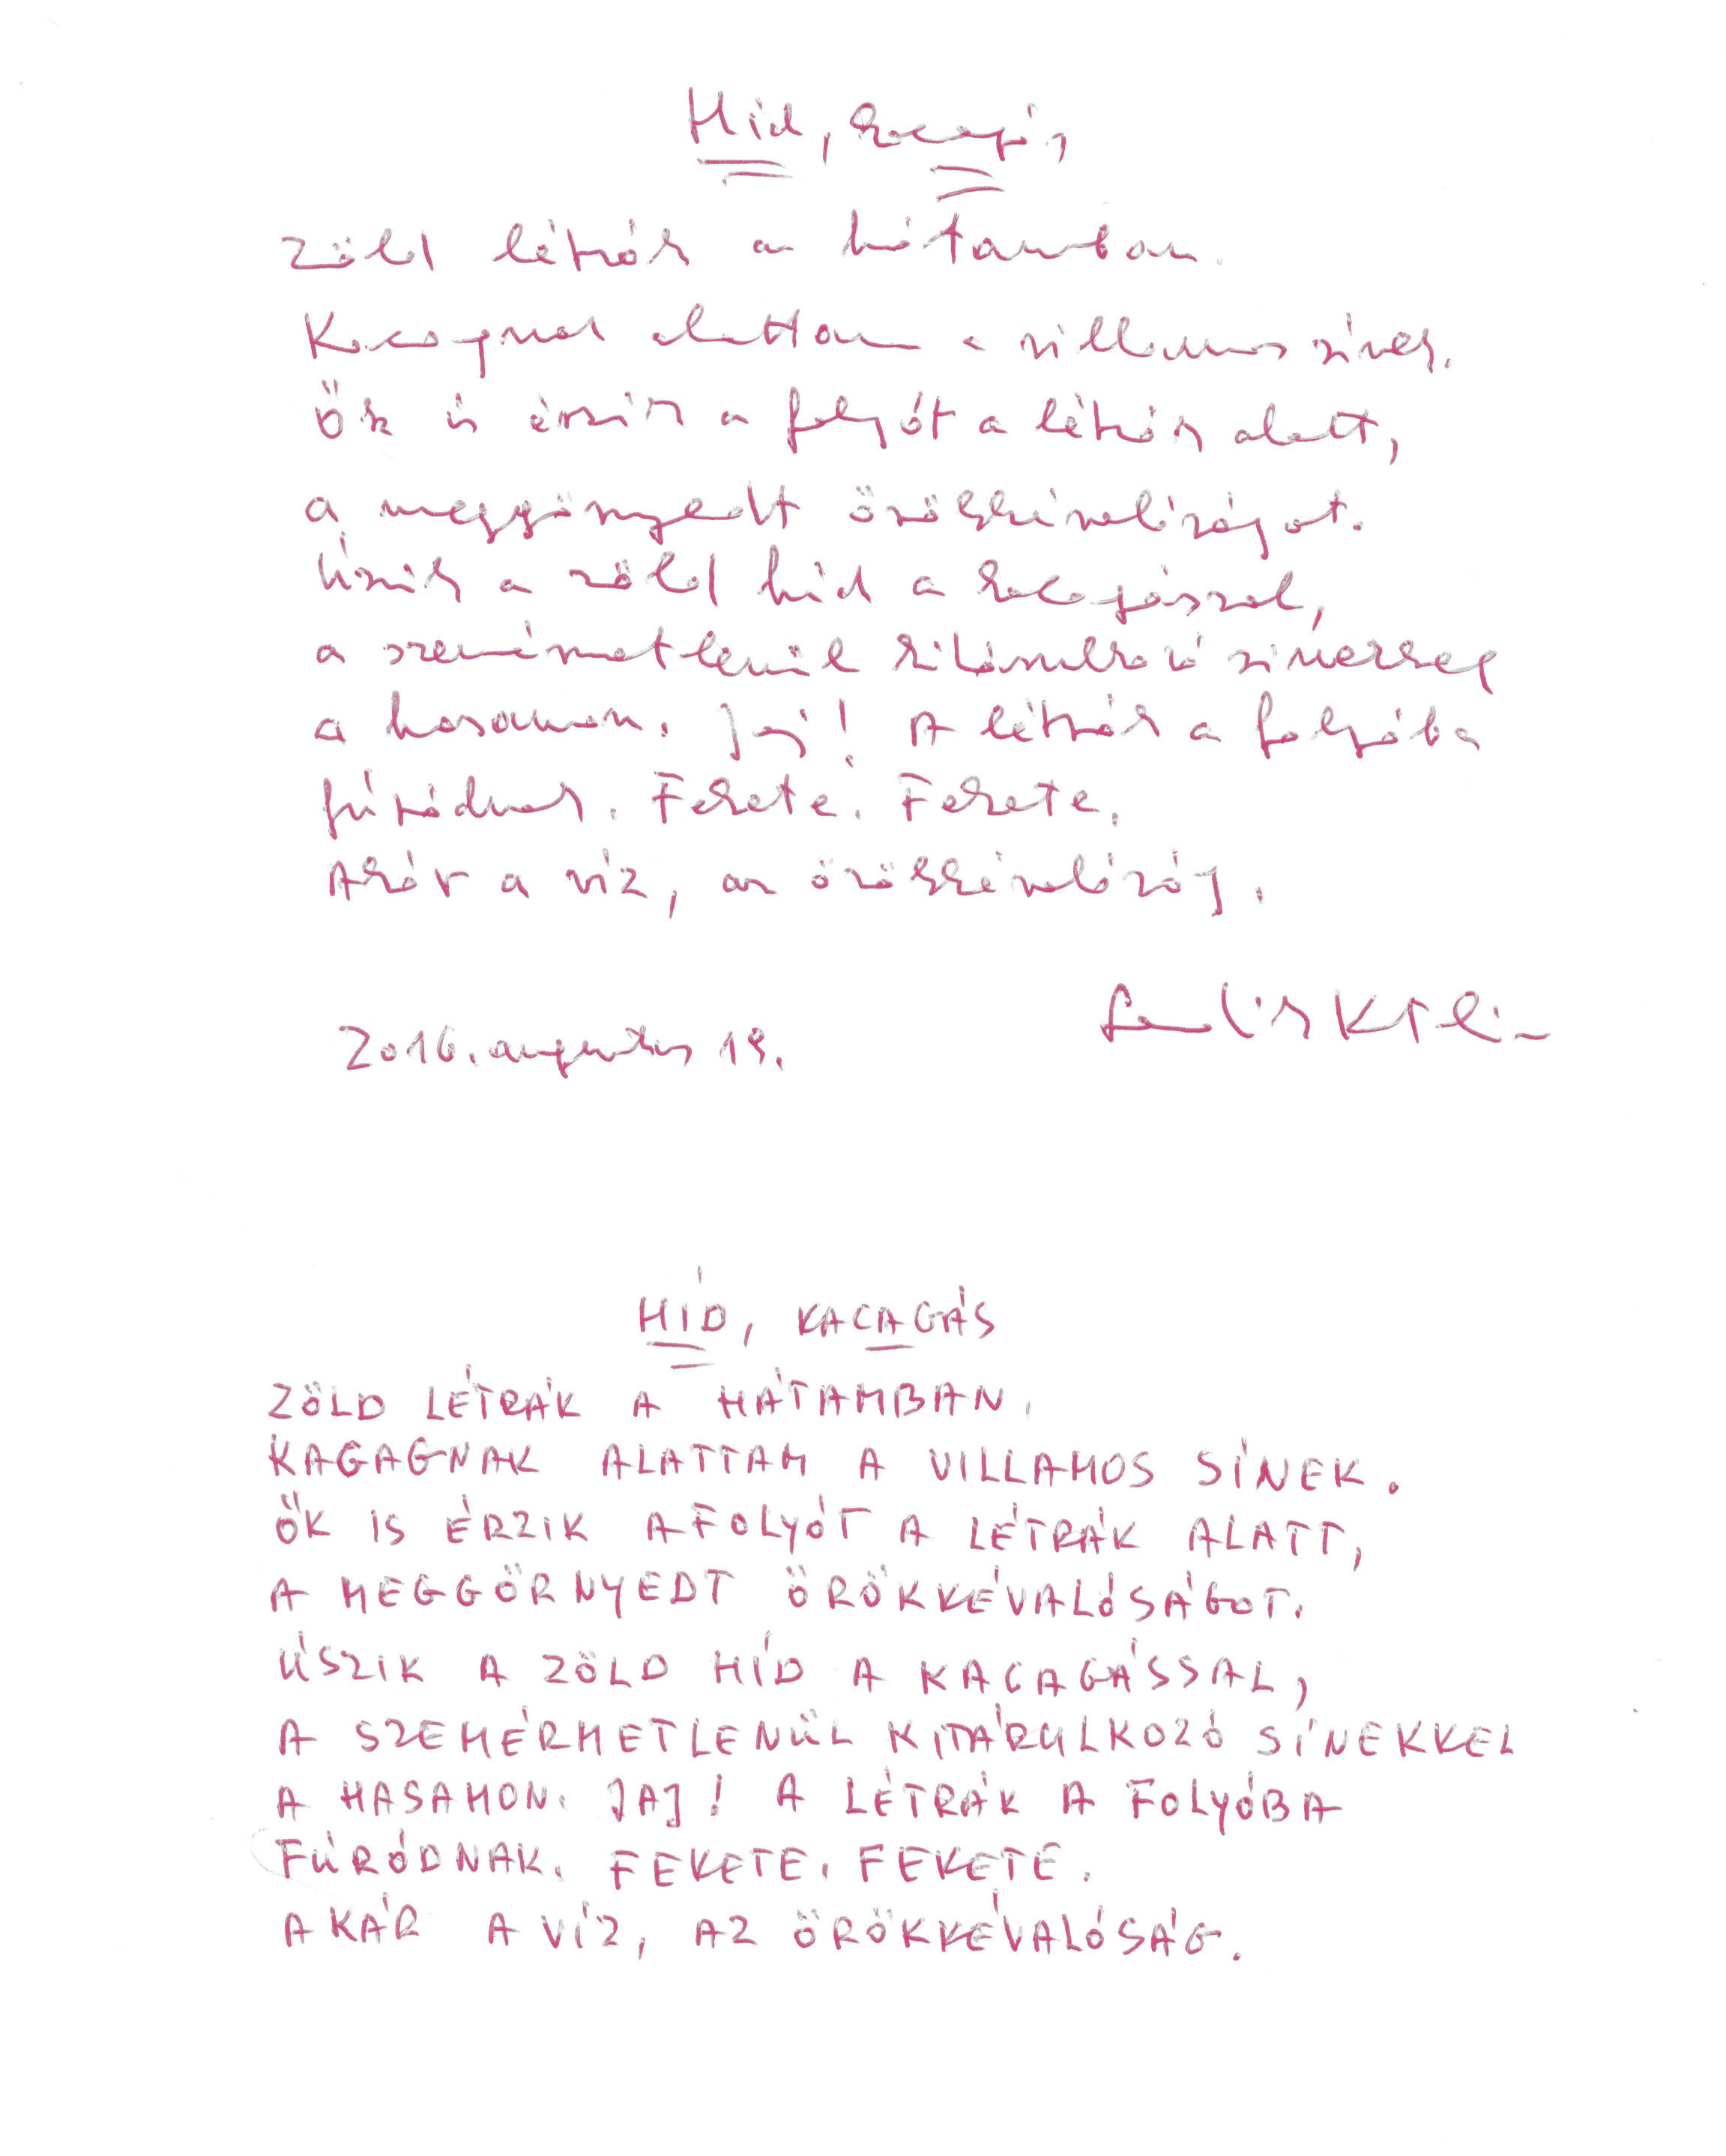 Híd, kacagás
Zöld létrák a hátamban.
Kacagnak alattam a villamos sínek.
Ők is érzik a folyót a létrák alatt,
a meggörnyedt örökkévalóságot.
Úszik a zöld híd a kacagással,
a szemérmetlenül kitárulkozó sínekkel
a hasamon. Jaj! A létrák a folyóba
fúródnak. Fekete. Fekete.
Akár a víz, az örökkévalóság.
2016. augusztus 19.
HÍD, KACAGÁS
ZÖLD LÉTRÁK A HÁTAMBAN.
KAGAGNAK ALATTAM A VILLAMOS SÍNEK.
ŐK IS ÉRZIK A FOLYÓT A LÉTRÁK ALATT,
A MEGGÖRNYEDT ÖRÖKKÉVALÓSÁGOT.
ÚSZIK A ZÖLD HÍD A KACAGÁSSAL,
A SZEMÉRMETLENÜL KITÁRULKOZÓ SÍNEKKEL
A HASAMON. JAJ! A LÉTRÁK A FOLYÓBA
FÚRÓDNAK. FEKETE. FEKETE.
AKÁR A VÍZ, AZ ÖRÖKKÉVALÓSÁG.